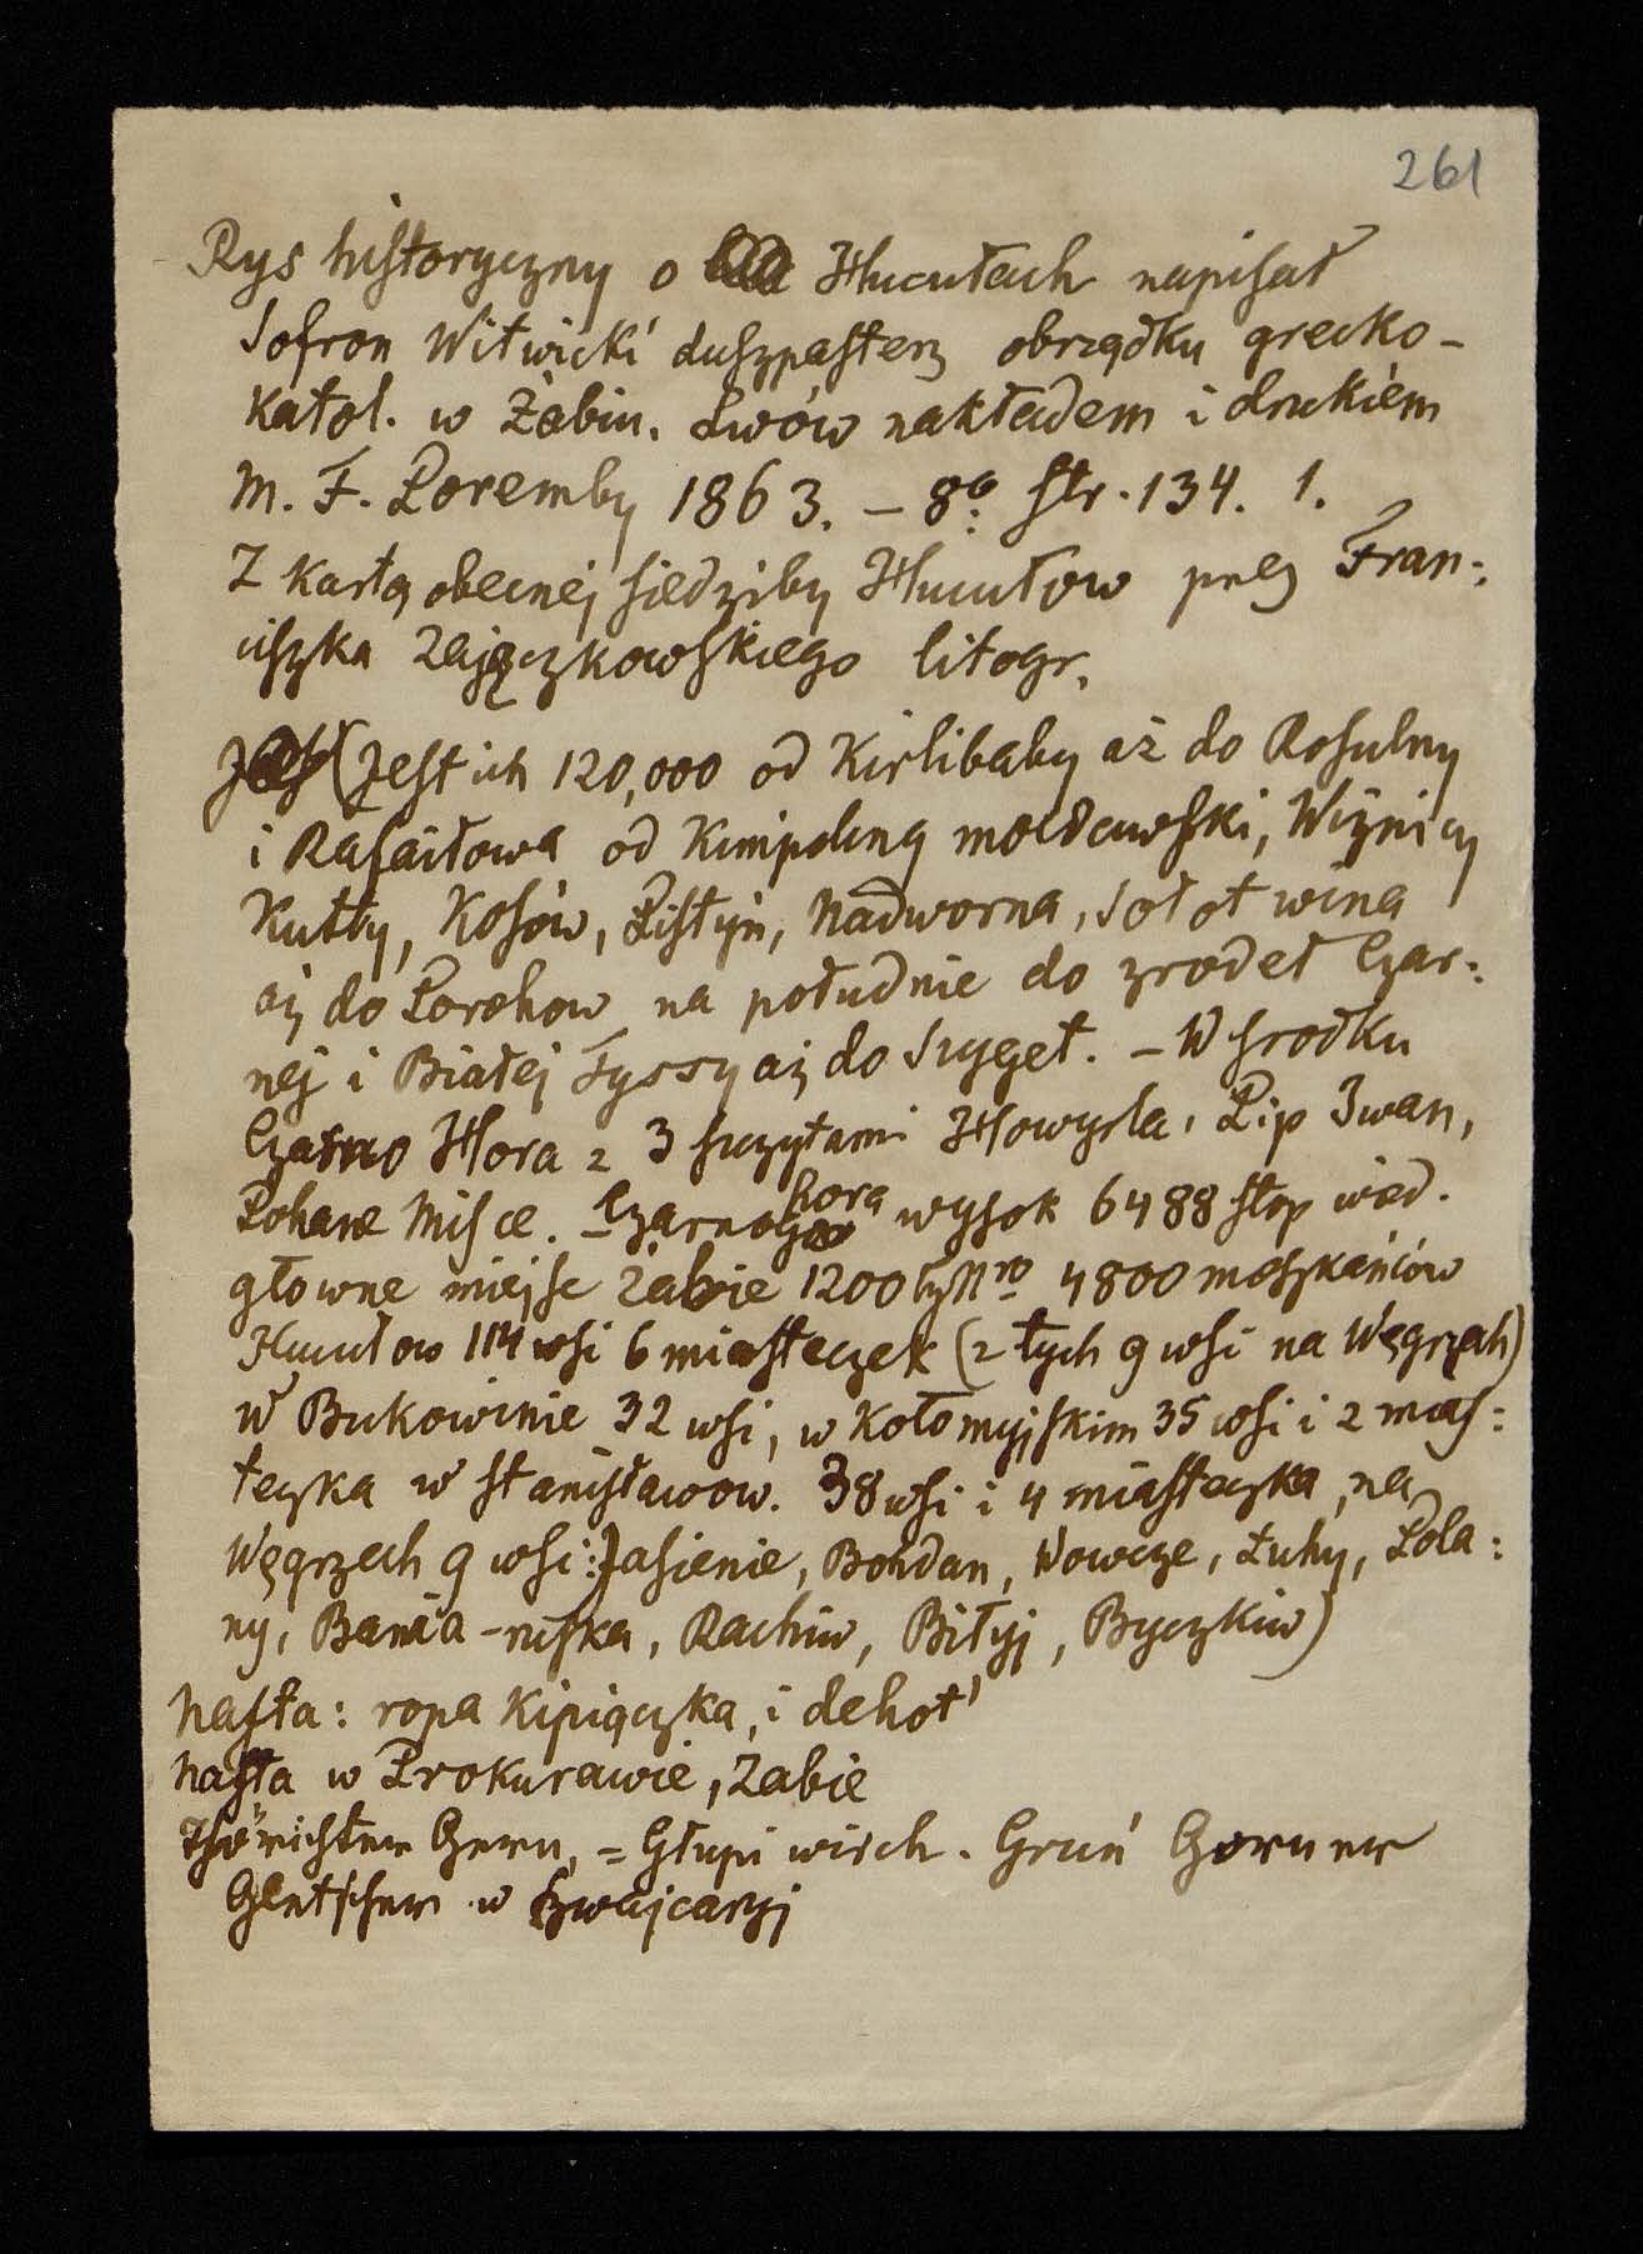 261
Rys historyczny o Hucułach napisał
Sofron Witwicki duszpasterz obrządku grecko-
katol. w Żabiu. Lwów nakładem i drukiem
M. F. Poremby 1863. – 8º str. 134. 1.
Z kartą obecnej siedziby Hucułow przez Fran-
ciszka Zajączkowskiego litogr.
(Jest ich 120,000 od Kirlibaby aż do Rosulny
i Rafaiłowa od Kimpolung mołdawski, Wiżnicy
Kutty, Kosów, Pistyń, Nadworna, Sołotwina
aż do Porohow na południe do zrodeł Czar-
nej i Białej Tyssy aż do Syget. – W srodku
Czarno Hora z 3 szczytami Howyrla, Pip Iwan,
Pohane Misce. – Czarnohora wysok 6488 stop wied.
głowne miejsc Zabie 1200 Nro 4800 mieszkańców
Hucułow 114 wsi 6 miasteczek (z tych 9 wsi na Węgrzech)
w Bukowinie 32 wsi, w Kołomyjskim 35 wsi i 2 mias-
teczka w Stanisławow. 38 wsi i 4 miasteczka, na
Węgrzech 9 wsi: Jasienie, Bohdan, Wowcze, Łuhy, Pola-
ny, Bania-ruska, Rachiw, Biłyj, Byczkiw)
Nafta: ropa kipiączka, i dehot'
Nafta w Prokurawie, Zabie
Thörichter Gern, = Głupi wirch. Gruń Gorner
Gletscher w Szwajcaryj